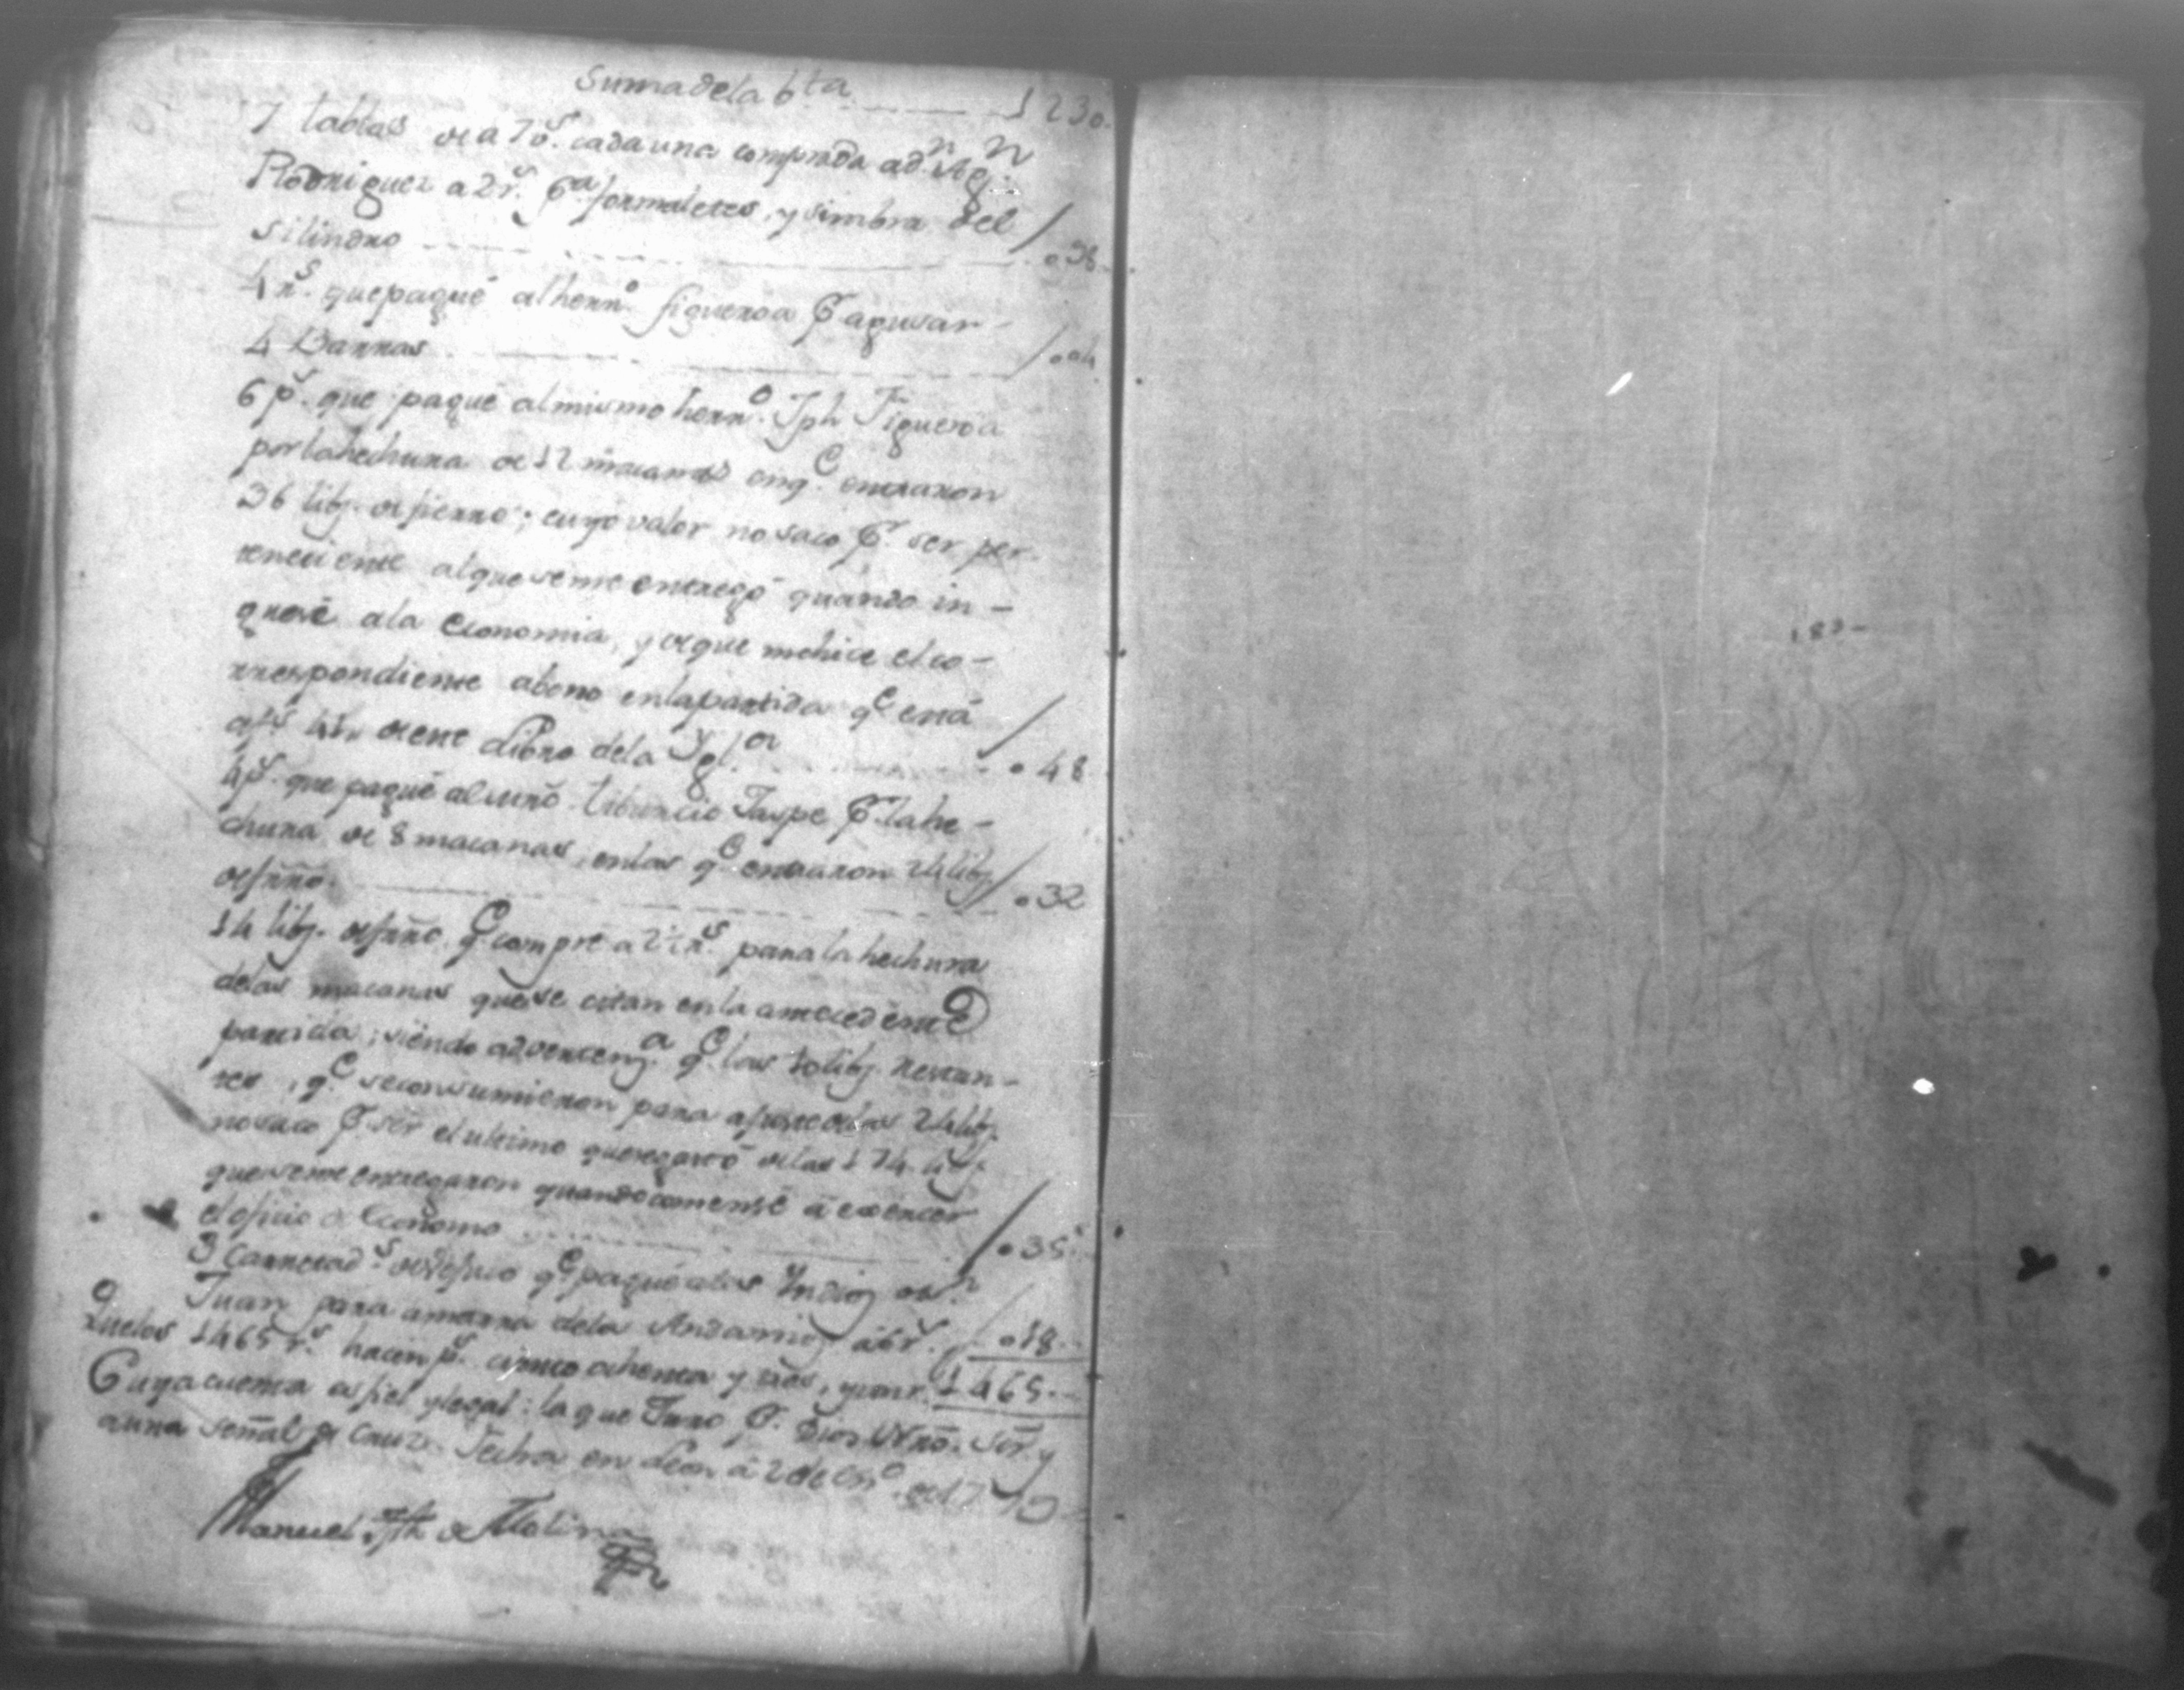 Suma dela 6ta 1230.
7 tablas de a 7 vs. cada una comprada a dn. Ag.n
Rodriguez a 2 rs. Pa. formaletes, y simbra del
silindro . 98
4 rs. que pagué al herrº. figueroa P. agusar
4 Barras . 04
6 ps. que pagué al mismo herrº. Jph Figueroa
por la hechura de 12 macanas en q.e entraron
36 libs. de fierro; cuyo valor no saco P. ser per-
teneciente al que se me entregó quando in-
gresé a la economia, y de que me hice el co-
rrespondiente abono en la partida q.e está
de este Libro de la Ygl.a . 48
4 ps. que pagué al mrõ. tiburcio Jaspe P. la he-
chura de 8 macanas, en las q.e entraron 24 libs.
de frrõ. . 32
14 libs. de frrõ. q.e compré a 2½ rs. para la hechura
de las macanas que se citan en la antecedente
partida; siendo advertenz.a q.e las 10 libs. restan-
tes, q.e se consumieron para ajuste de las 24 libs.
no saco P. ser el ultimo que se gastó de las 174 libs.
que se me entregaron quando comensé á exercer
el ofisio de Economo . 35.
3 Carretads. de vejuco q.e pagué a los Yndios de Sn.
Juan para amarra de los Andamios á 6 rs. . 18..
Los quelos 1465 rs. hacen ps. ciento ochenta y tres, y un r. 1465..
Cuya cuenta es fiel y legal: la que Juro P. Dios Nrõ. Sõr. y
a una señal de Cruz. Fecha en Leon á 2 de Enº. de 17
Manuel Jph de Molina
183-